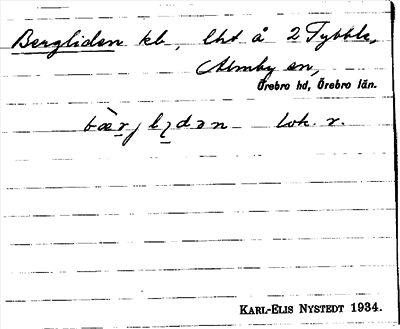 Bergliden kb, lht å 2 Tybble,
Almby sn,
Örebro hd, Örebro län.
bæ̀rjlıdən lok. r.
KARL-ELIS NYSTEDT 1934.